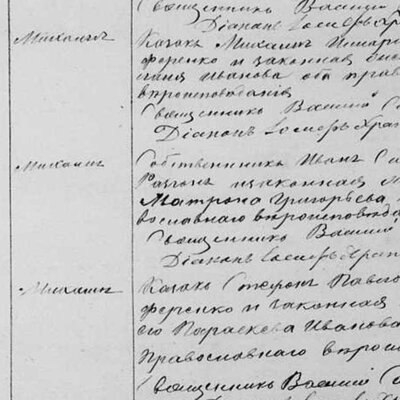 Священникъ Василій
Діаконъ Іосифъ Хра
Михаилъ
Казакъ Михаилъ
ференко и законная
Иванова оба прав
вѣроисповѣданія
Священникъ Василій С
Діаконъ Іосифъ Храп
Михаилъ
Собственникъ Иванъ Са
и законная
Матрона Григорьева
вославнаго вѣроисповѣда
Священникъ Василій
Діаконъ Іосифъ Храп
Михаилъ
Казакъ Павло
ференко и законная
его Параскева Иванова
Православнаго вѣроис
Священникъ Василій С
Діаконъ Іосифъ Хра